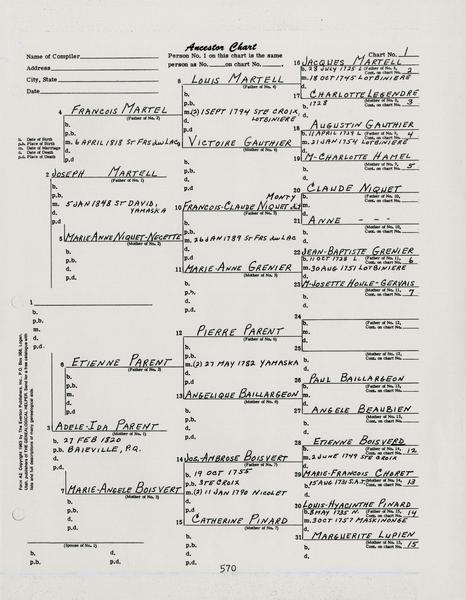 Ancestor Chart
Name of Compiler
Address
City, State
Date
Person No. 1 on this chart is the same
person as No. on chart No.
Chart No. 1
b. Date of Birth
p.b. Place of Birth
m. Date of Marriage
d. Date of Death
p.d. Place of Death
1
b.
p.b.
m.
d.
p.d.
(Spouse of No. 1)
b. d.
p.b. p.d.
2 JOSEPH MARTELL
(Father of No. 1)
b.
p.b.
m. 5 JAN 1848 ST DAVID,
YAMASKA
d.
p.d
3 ADELE-IDA PARENT
(Mother of No. 1)
b. 27 FEB 1820
p.b. BAIEVILLE, P.Q.
d.
p.d.
4 FRANCOIS MARTEL
(Father of No. 2)
b.
p.b.
m. 6 APRIL 1818 ST FRS du LAC
d.
p.d
5 MARIE ANNE NIQUET-NECETTE
(Mother of No. 2)
b.
p.b.
d.
p.d.
6 ETIENNE PARENT
(Father of No. 3)
b.
p.b.
m.
d.
p.d.
7 MARIE-ANGELE BOISVERT
(Mother of No. 3)
b.
p.b.
d.
p.d.
8 LOUIS MARTELL
(Father of No. 4)
b.
p.b.
m. (2) 1 SEPT 1794 STE CROIX,
LOTBINIERE
d.
p.d
9 VICTOIRE GAUTHIER
(Mother of No. 4)
b.
p.b.
d.
p.d.
MONTY
10 FRANCOIS-CLAUDE NIQUET
b.
p.b.
m. 26 JAN 1789 ST FRS du LAC
d.
p.d.
11 MARIE-ANNE GRENIER
(Mother of No. 5)
b.
p.b.
d.
p.d.
12 PIERRE PARENT
(Father of No. 6)
b.
p.b.
m. (2) 27 MAY 1782 YAMASKA
d.
p.d.
13 ANGELIQUE BAILLARGEON
(Mother of No. 6)
b.
p.b.
d.
p.d.
14 JOS-AMBROSE BOISVERT
(Father of No. 7)
b. 19 OCT 1755
p.b. STE CROIX
m. (2) 11 JAN 1790 NICOLET
d.
p.d.
15 CATHERINE PINARD
(Mother of No. 7)
b.
p.b.
d.
p.d.
16 JACQUES MARTELL
b. 28 JULY 1725 L (Father of No. 8,
m. 18 OCT 1745 LOTBINIERE Cont. on chart No. 2
17 CHARLOTTE LEGENDRE
b. 1728 (Mother of No. 8,
d. Cont. on chart No. 3
18 AUGUSTIN GAUTHIER
b. 11 APRIL 1729 L (Father of No. 9,
m. 21 JAN 1754 LOTBINIERE Cont. on chart No. 4
19 M-CHARLOTTE HAMEL
b. (Mother of No. 9,
d. Cont. on chart No. 5
20 CLAUDE NIQUET
b. (Father of No. 10,
m. Cont. on chart No.
21 ANNE - - -
b. (Mother of No. 10,
d. Cont. on chart No.
22 JEAN-BAPTISTE GRENIER
b. 11 OCT 1728 L (Father of No. 11,
m. 30 AUG 1751 LOTBINIERE Cont. on chart No. 6
23 M-JOSETTE HOULE-GERVAIS
b. (Mother of No. 11,
d. Cont. on chart No. 7
24
b. (Father of No. 12,
m. Cont. on chart No.
25
b. (Mother of No. 12,
d. Cont. on chart No.
26 PAUL BAILLARGEON
b. (Father of No. 13,
m. Cont. on chart No.
27 ANGELE BEAUBIEN
b. (Mother of No. 13,
d. Cont. on chart No.
28 ETIENNE BOISVERD
b. (Father of No. 14,
m. 2 JUNE 1749 STE CROIX Cont. on chart No. 12
29 MARIE-FRANCOIS CHORET
b. 15 AUG 1731 S.A.T (Mother of No. 14,
d. Cont. on chart No. 13
30 LOUIS-HYACINTHE PINARD
b. 8 MAY 1735 N. (Father of No. 15,
m. 3 OCT 1757 MASKINONGE Cont. on chart No. 14
31 MARGUERITE LUPIEN
b. (Mother of No. 15,
d. Cont. on chart No. 15
Form A2. Copyright 1963 by The Everton Publishers, Inc. P.O. Box 368, Logan,
Utah, publishers of THE GENEALOGICAL HELPER. Send for a free catalogue with
lists and full descriptions of many genealogical aids.
570